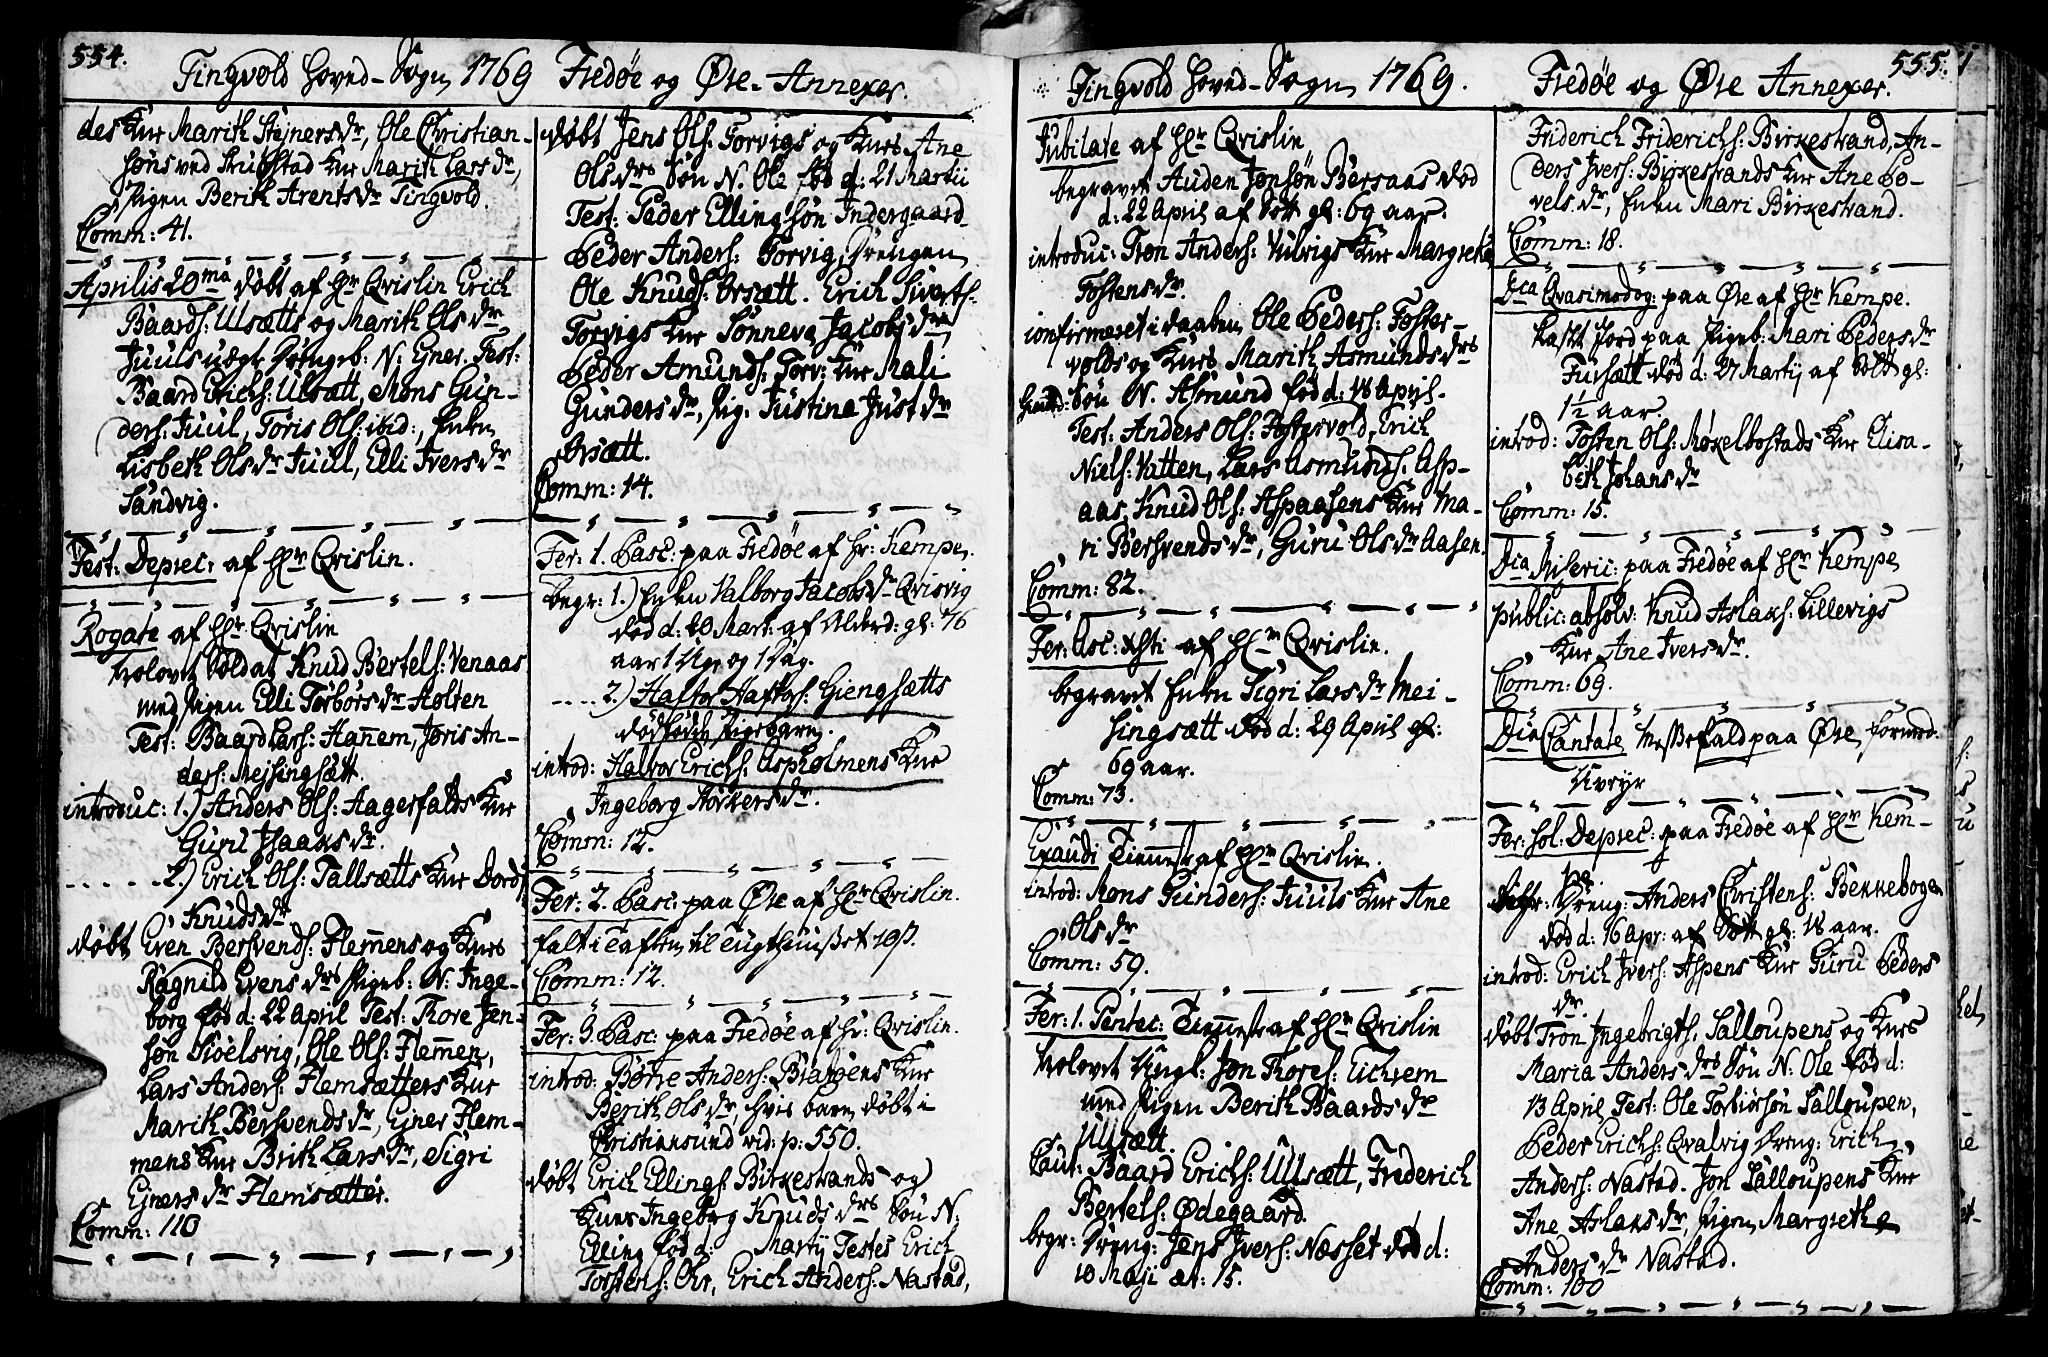 554.
Tingvold Hoved-Sogn 1769
Fredøe og Øre-Annexer.
des Kne Marith Stejnersdr, Ole Christian-
Marith Larsdr,
Pigen Berith Arentsdr Tingvold.
Comm: 41.
Aprilis 20ma døbt af Hr Qvislin Erich
Baards: Ulsætts og Marith Olsdr
Juuls uægte Drengeb: N: Ejner. Test:
Baard Erichs: Ulsætt, Mons Gun-
ders: Juul, Toris Ols: ibid:, Enken
Lisbeth Olsdr Juul, Elli Iversdr
Sandvig.
Fest: Deprec: af Hr Qvislin.
Rogate af Hr Qvislin
trolovet Soldat Knud Bertels: Venaas
med Pigen Elli Torbørsdr Holten
Test: Baard Lars: Hanem, Joris An-
ders: Mejsingsætt.
introduc: 1.) Anders Ols: Aagersalds Kne
Guru Isaaksdr.
.....2.) Erich Ols: Tallsætts Kne Dordi
Knudsdr
døbt Even Bersvends: Flemmens og Knes
Ragnild Evensdrs Pigeb: N: Inge-
borg fød d: 22 April Test: Tore Jen-
søn Skøelsvig, Ole Ols: Flemmen,
Lars Anders: Flemsætters Kne
Marith Bersvendsdr, Ejner Flem-
mens Kne Brith Larsdr, Sigri
Ejnersdr Flemsætter.
Comm: 110
døbt Jens Ols: Torvigs og Knes Ane
Olsdrs Søn N. Ole fød d: 21 Martii
Test: Peder Ellingsøn Indergaard
Peder Anders: Torvig, Drengen
Ole Knuds: Orsætt. Erich Siverts-
Torvigs Kne Sønneva Jacobsdr,
Peder Amunds: Torv: Kne Mali
Gundersdr, Pig: Justina Justdr
Orsætt.
Comm: 14.
Fer: 1. Pasc: paa Fredøe af Hr: Kempe.
begr: 1.) Enken Valborg Jacobsdr Qvisvig
død d: 20 Mart: af Alderd: gl: 76
aar 1 Uge og 1 Dag.
....2.) Haftor Haftors: Giengsætts
dødfødde Pigebarn.
introd: Halvor Erichs: Aspholmens Kne
Ingeborg Størkersdr.
Comm: 12.
Fer: 2. Pasc: paa Øre af Hr Qvislin.
falt i Taflen til Tugthuuset 10 s.
Comm: 12.
Fer: 3. Pasc: paa Fredøe af Hr: Qvislin.
introd: Børre Anders: Biarøens Kne
Berith Olsdr, hvis barn døbt i
Christiansund vid: p: 550.
døbt Erich Ellings: Birkestrands og
Knes Ingeborg Knudsdrs Søn N.
Elling fød d: Martij Testes Erich
Torstens: Ohr, Erich Anders: Nastad,
555.
Tingvold Hoved-Sogn 1769.
Fredøe og Øre Annexer.
Jubilate af Hr Qvislin
begravet Auden Jonsøn Bersaas død
d: 22 April af Sott gl: 69 aar.
introduc: Tron Anders: Vulvigs Kne Margrethe
Tostensdr.
confirmeret i daaben Ole Peders: Foster-
volds og Knes Marith Asmundsdrs
Søn N. Asmund fød d: 18 April.
Test: Anders Ols: Fostervold, Erich
Niels: Vatten, Lars Asmunds: Asp-
aas, Knud Ols: Aspaasens Kne Ma-
ri Bersvendsdr, Guru Olsdr Aasen.
Comm: 82.
Fer: Asc: Xsti af Hr Qvislin.
begravet Enken Sigri Larsdr Mei-
singsætt død d: 29 April gl:
69 aar.
Comm: 73.
Exaudi Tienest af Hr Qvislin.
introd: Mons Gunders: Juuls Kne Ane
Olsdr
Comm: 59.
Fer: 1. Pentec: Tienest af Hr Qvislin
trolovet Ungk: Jon Tores: Eichrem
med Pigen Berith Baardsdr
Ullsætt.
Caut: Baard Erichs: Ullsætt, Frederich
Bertels: Ødegaard.
begr: Dreng: Jens Ivers: Næsset død d:
10 Maji æt: 15.
Friderich Friderichs: Birkestrand, An-
ders Ivers: Birkestrands Kne Ane Po-
velsdr, Enken Mari Birkestrand.
Comm: 18.
Dca Qvasimodog: paa Øre af Hr Kempe.
kast Jord paa Pigeb: Mari Pedersdr
Fursætt død d: 27 Martij af Sott gl:
1½ aar.
introd: Tosten Ols: Møkelbostads Kne Elisa-
beth Johansdr
Comm: 15.
Dca Miseric: paa Fredøe af Hr Kempe
public: absolv: Knud Aslaks: Lillevigs
Kne Ane Iversdr.
Comm: 69.
Dca Cantate, Messefald paa Øre, formed:
Uveyr
Fer: sol: Deprec: paa Fredøe af Hr Kem-
pe.
Begr: Dreng: Anders Christens: Bekkebogen
død d: 16 Apr: af Sott gl: 18 aar.
introd: Erich Ivers: Aspens Kne Guru Peders
dr.
døbt Tron Ingebrigts: Salloupens og Knes
Maria Andersdrs Søn N: Ole fød d:
13 April Test: Ole Torbiørsøn Salloupen,
Peder Erichs: Qvalvig Dreng: Erich
Anders: Nastad. Jon Salloupens Kne
Ane Aslaksdr, Pigen Margrethe
Andersdr Nastad.
Comm: 100